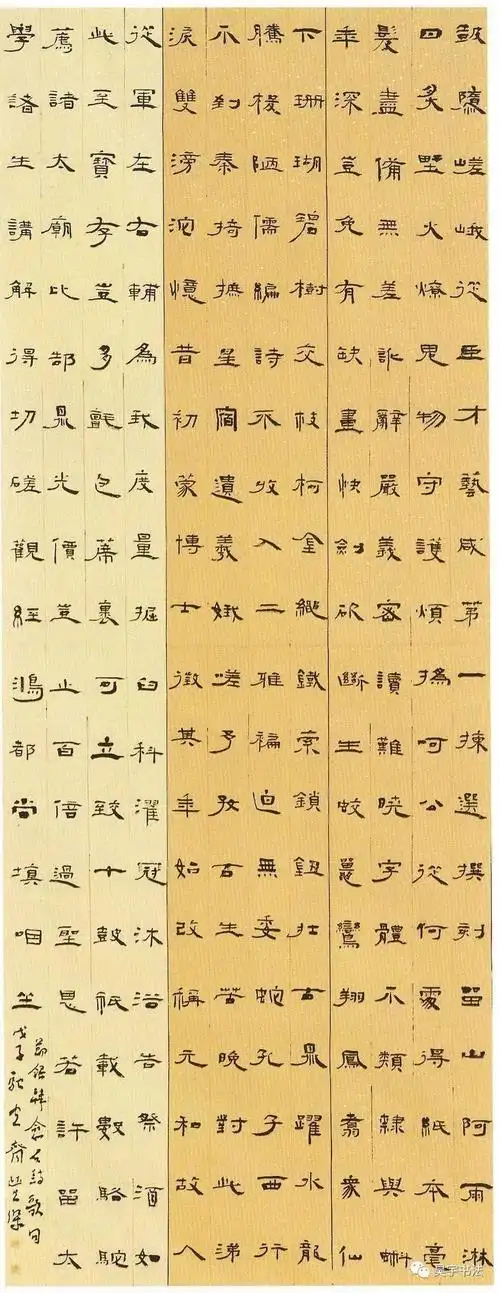 鼓隳嵯峨從臣才藝咸第一揀選撰刻留山阿雨淋
日炙野火燎鬼物守護煩撝呵公從何處得紙本毫
髮盡備無差訛辭嚴義密讀難曉字體不類隸與蝌
年深豈免有缺畫快劍斫斷生蛟鼉鸞翔鳳翥衆仙
下珊瑚碧樹交枝柯金繩鐵索鎖鈕壯古鼎躍水龍
騰梭陋儒編詩不收入二雅褊迫無委蛇孔子西行
不到秦掎摭星宿遺羲娥嗟予好古生苦晚對此涕
淚雙滂沱憶昔初蒙博士徵其年如改稱元和故人
從軍左右輔為我度量掘臼科濯冠沐浴告祭酒如
此至寶存豈多氈包席裹可立致十鼓祇載數駱駝
薦諸太廟比郜鼎光價豈止百倍過聖恩若許留太
學諸生講解得切磋觀經鴻都尚填咽坐
節錄韓愈石鼓歌句
戊子秋
昊宇书法